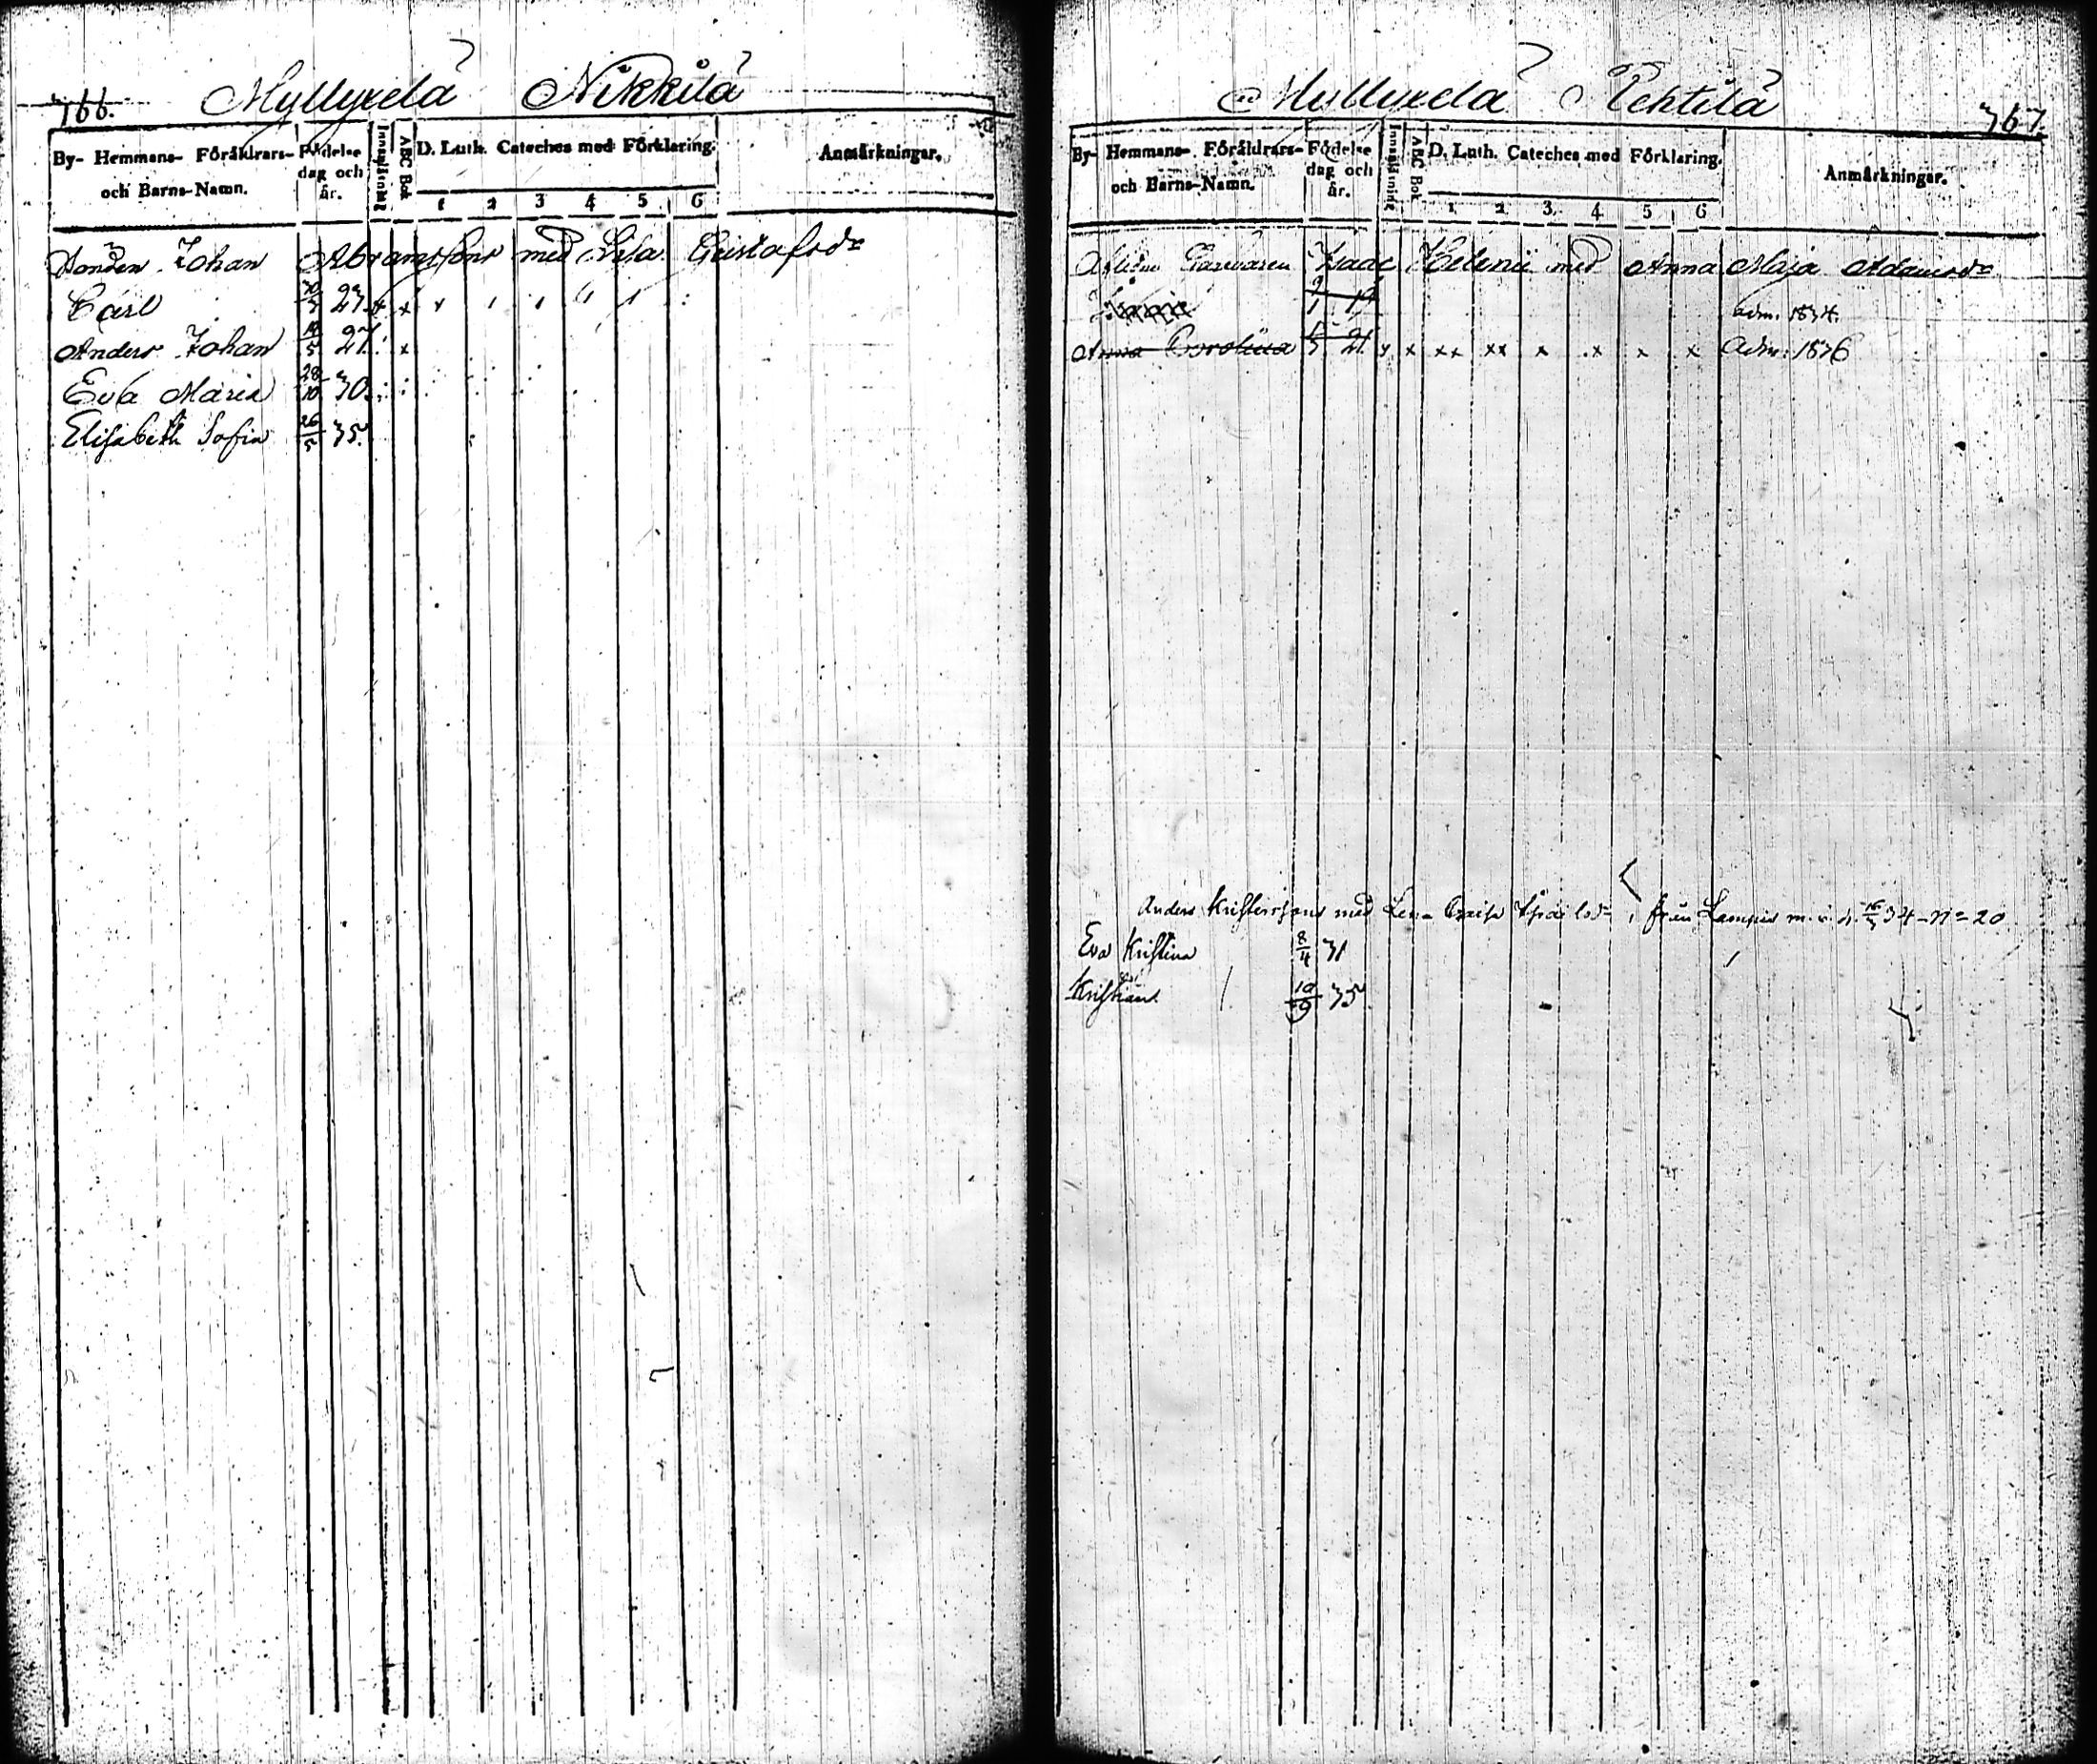 766. Myllyxelä Nikkilä
By- Hemmans- Föräldrars- och Barns-Namn. Födelse dag och år. Innanläsning ABC Bok D. Luth. Cateches med Förklaring. Anmärkningar.
1 2 3 4 5 6
Johan Abramssons med Lisa Gustafsdr
Carl 27 x x
Anders Johan 5 27 x
Eva Maria 28/10 30
Elisabeth Sofia 26/5 35
Myllyxelä Pehtilä 767.
By- Hemmans- Föräldrars- och Barns-Namn. Födelse dag och år. Innanläsning ABC Bok D. Luth. Cateches med Förklaring. Anmärkningar.
1 2 3 4 5 6
Isaac Helenii med Anna Maja Adamsdr
9/1 19 adm. 1834.
Anna Carolina 21 x x xx xx x x x x Adm: 1836
Anders Kristerssons med från Lampis 34 - No 20
Eva Kristina 8/4 31
Kristian 10/9 35